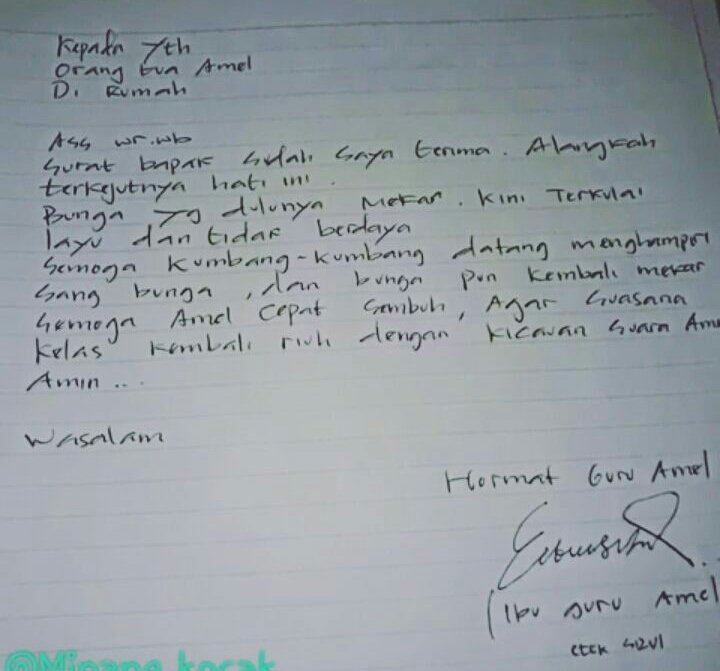 Kepada Yth
Orang tua Amel
Di Rumah
Ass wr.wb
Surat bapak sudah saya terima. Alangkah
terkejutnya hati ini.
Bunga yg dulunya Mekar. Kini Terkulai
layu dan tidak berdaya
Semoga Kumbang-kumbang datang menghampiri
sang bunga, dan bunga pun kembali mekar
Semoga Amel cepat sembuh, Agar suasana
kelas kembali riuh dengan kicauan suara Ame
Amin...
Wasalam
Hormat Guru Amel
(Ibu guru Amel
@Minang kocak